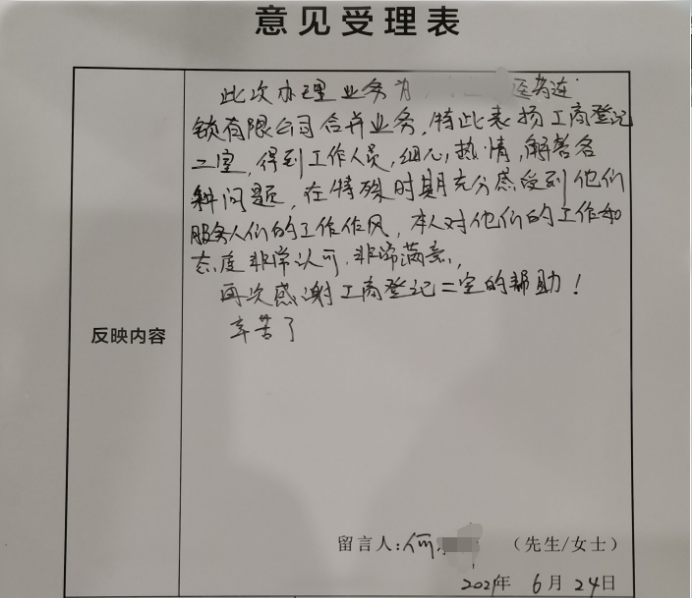 意见受理表
此次办理业务为 医药连
锁有限公司合并业务,特此表扬工商登记
二室,得到工作人员,细心,热情,解答各
种问题,在特殊时期充分感受到他们
服务人们的工作作风,本人对他们的工作和
态度非常认可,非常满意,
再次感谢工商登记二室的帮助!
辛苦了
反映内容
留言人:何 (先生/女士)
2021年 6月24日